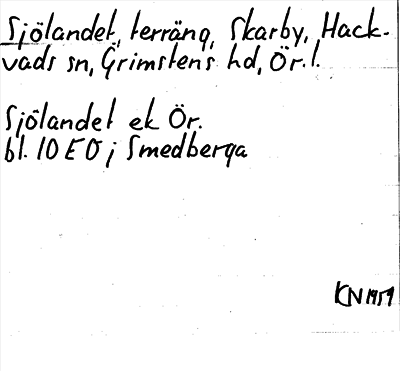 Sjölandet, terräng, Skarby, Hack-
vads sn, Grimstens hd, Ör. l.
Sjölandet ek Ör.
bl. 10 E 0 j Smedberga
KN 1959